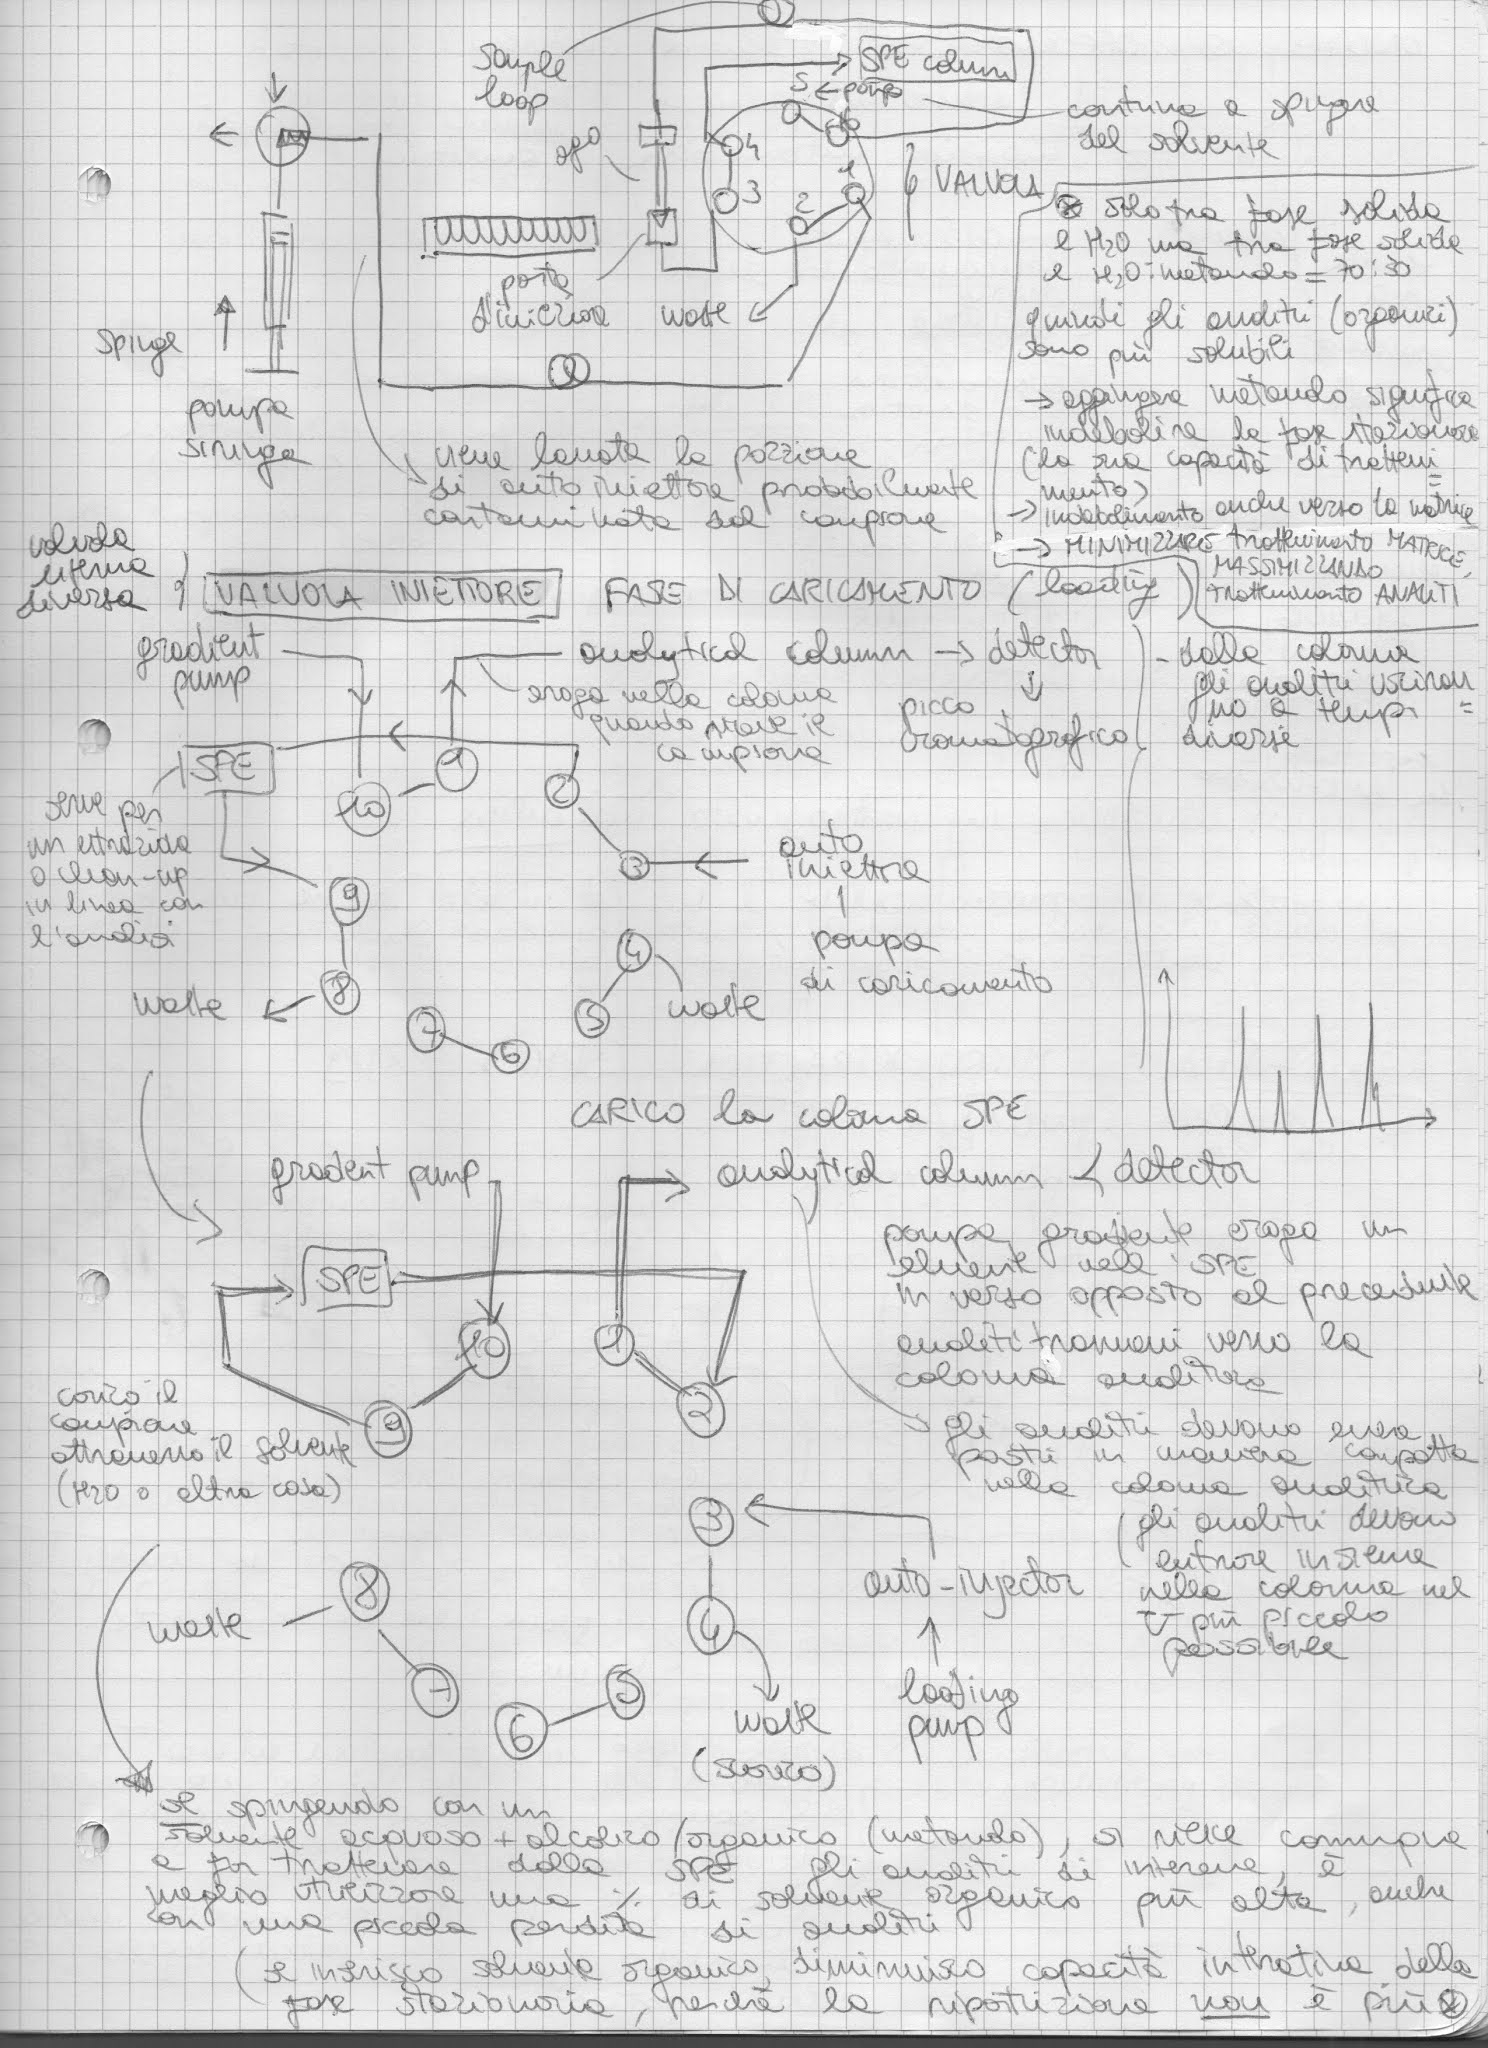 sample
loop
SPE column
5 ← pompa
continua a spingere
del solvente
ago
4
6
3
1
2
VALVOLA
⊗ solo tra fase solida
e H2O ma tra fase solida
e H2O:metanolo = 70:30
quindi gli analiti (organici)
sono più solubili
→ aggiungere metanolo significa
indebolire la fase stazionaria
(la sua capacità di tratteni=
mento)
→ indebolimento anche verso la matrice
→ MINIMIZZARE trattenimento MATRICE,
MASSIMIZZANDO
trattenimento ANALITI
porta
d'iniezione
waste
spinge
pompa
siringa
viene lavata la porzione
di auto iniettore probabilmente
contaminata dal campione
valvola
interna
diversa
VALVOLA INIETTORE FASE DI CARICAMENTO (loading)
gradient
pump
analytical column → detector
eroga nella colonna
quando arriva il
campione
picco
cromatografico
- dalla colonna
gli analiti usciran
no a tempi =
diversi
SPE
10
1
2
serve per
un'estrazione
o clean-up
in linea con
l'analisi
3
auto
iniettore
pompa
di caricamento
9
8
waste
7
6
4
5
waste
CARICO la colonna SPE
gradient pump
analytical column
detector
SPE
10
1
2
9
pompa gradiente eroga un
eluente nell'SPE
in verso opposto al precedente
analiti trascinati verso la
colonna analitica
carico il
campione
attraverso il solvente
(H2O o altra cosa)
gli analiti devono essere
posti in maniera compatta
nella colonna analitica
(gli analiti devono
entrare insieme
nella colonna nel
V più piccolo
possibile
3
auto-injector
4
8
waste
7
6
5
waste
(scarico)
loading
pump
se spingendo con un
solvente acquoso + alcolico/organico (metanolo), si riesce comunque
a far trattenere dalla SPE gli analiti di interesse, è
meglio utilizzare una % di solvente organico più alta, anche
con una piccola perdita di analiti
(se inserisco solvente organico, diminuisco capacità interattiva della
fase stazionaria, perché la ripartizione non è più ⊗